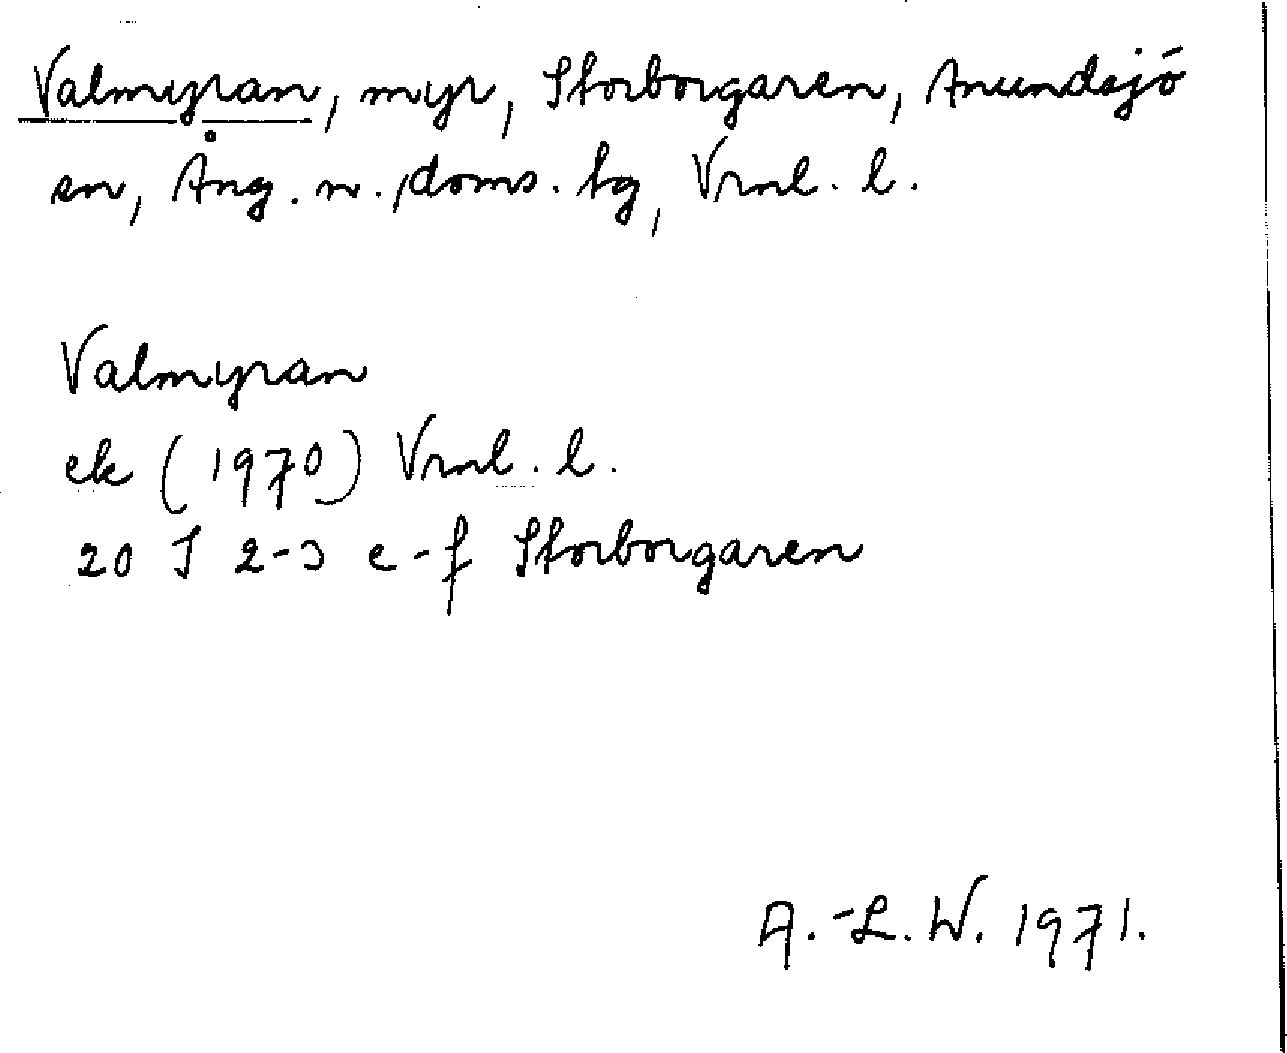 Valmyran, myr, Storborgaren, Anundsjö
sn, Ång. n. doms. tg, Vrnl. l.
Valmyran
ek (1970) Vrnl. l.
20 J 2-3 e-f Storborgaren
A.-L. W. 1971.